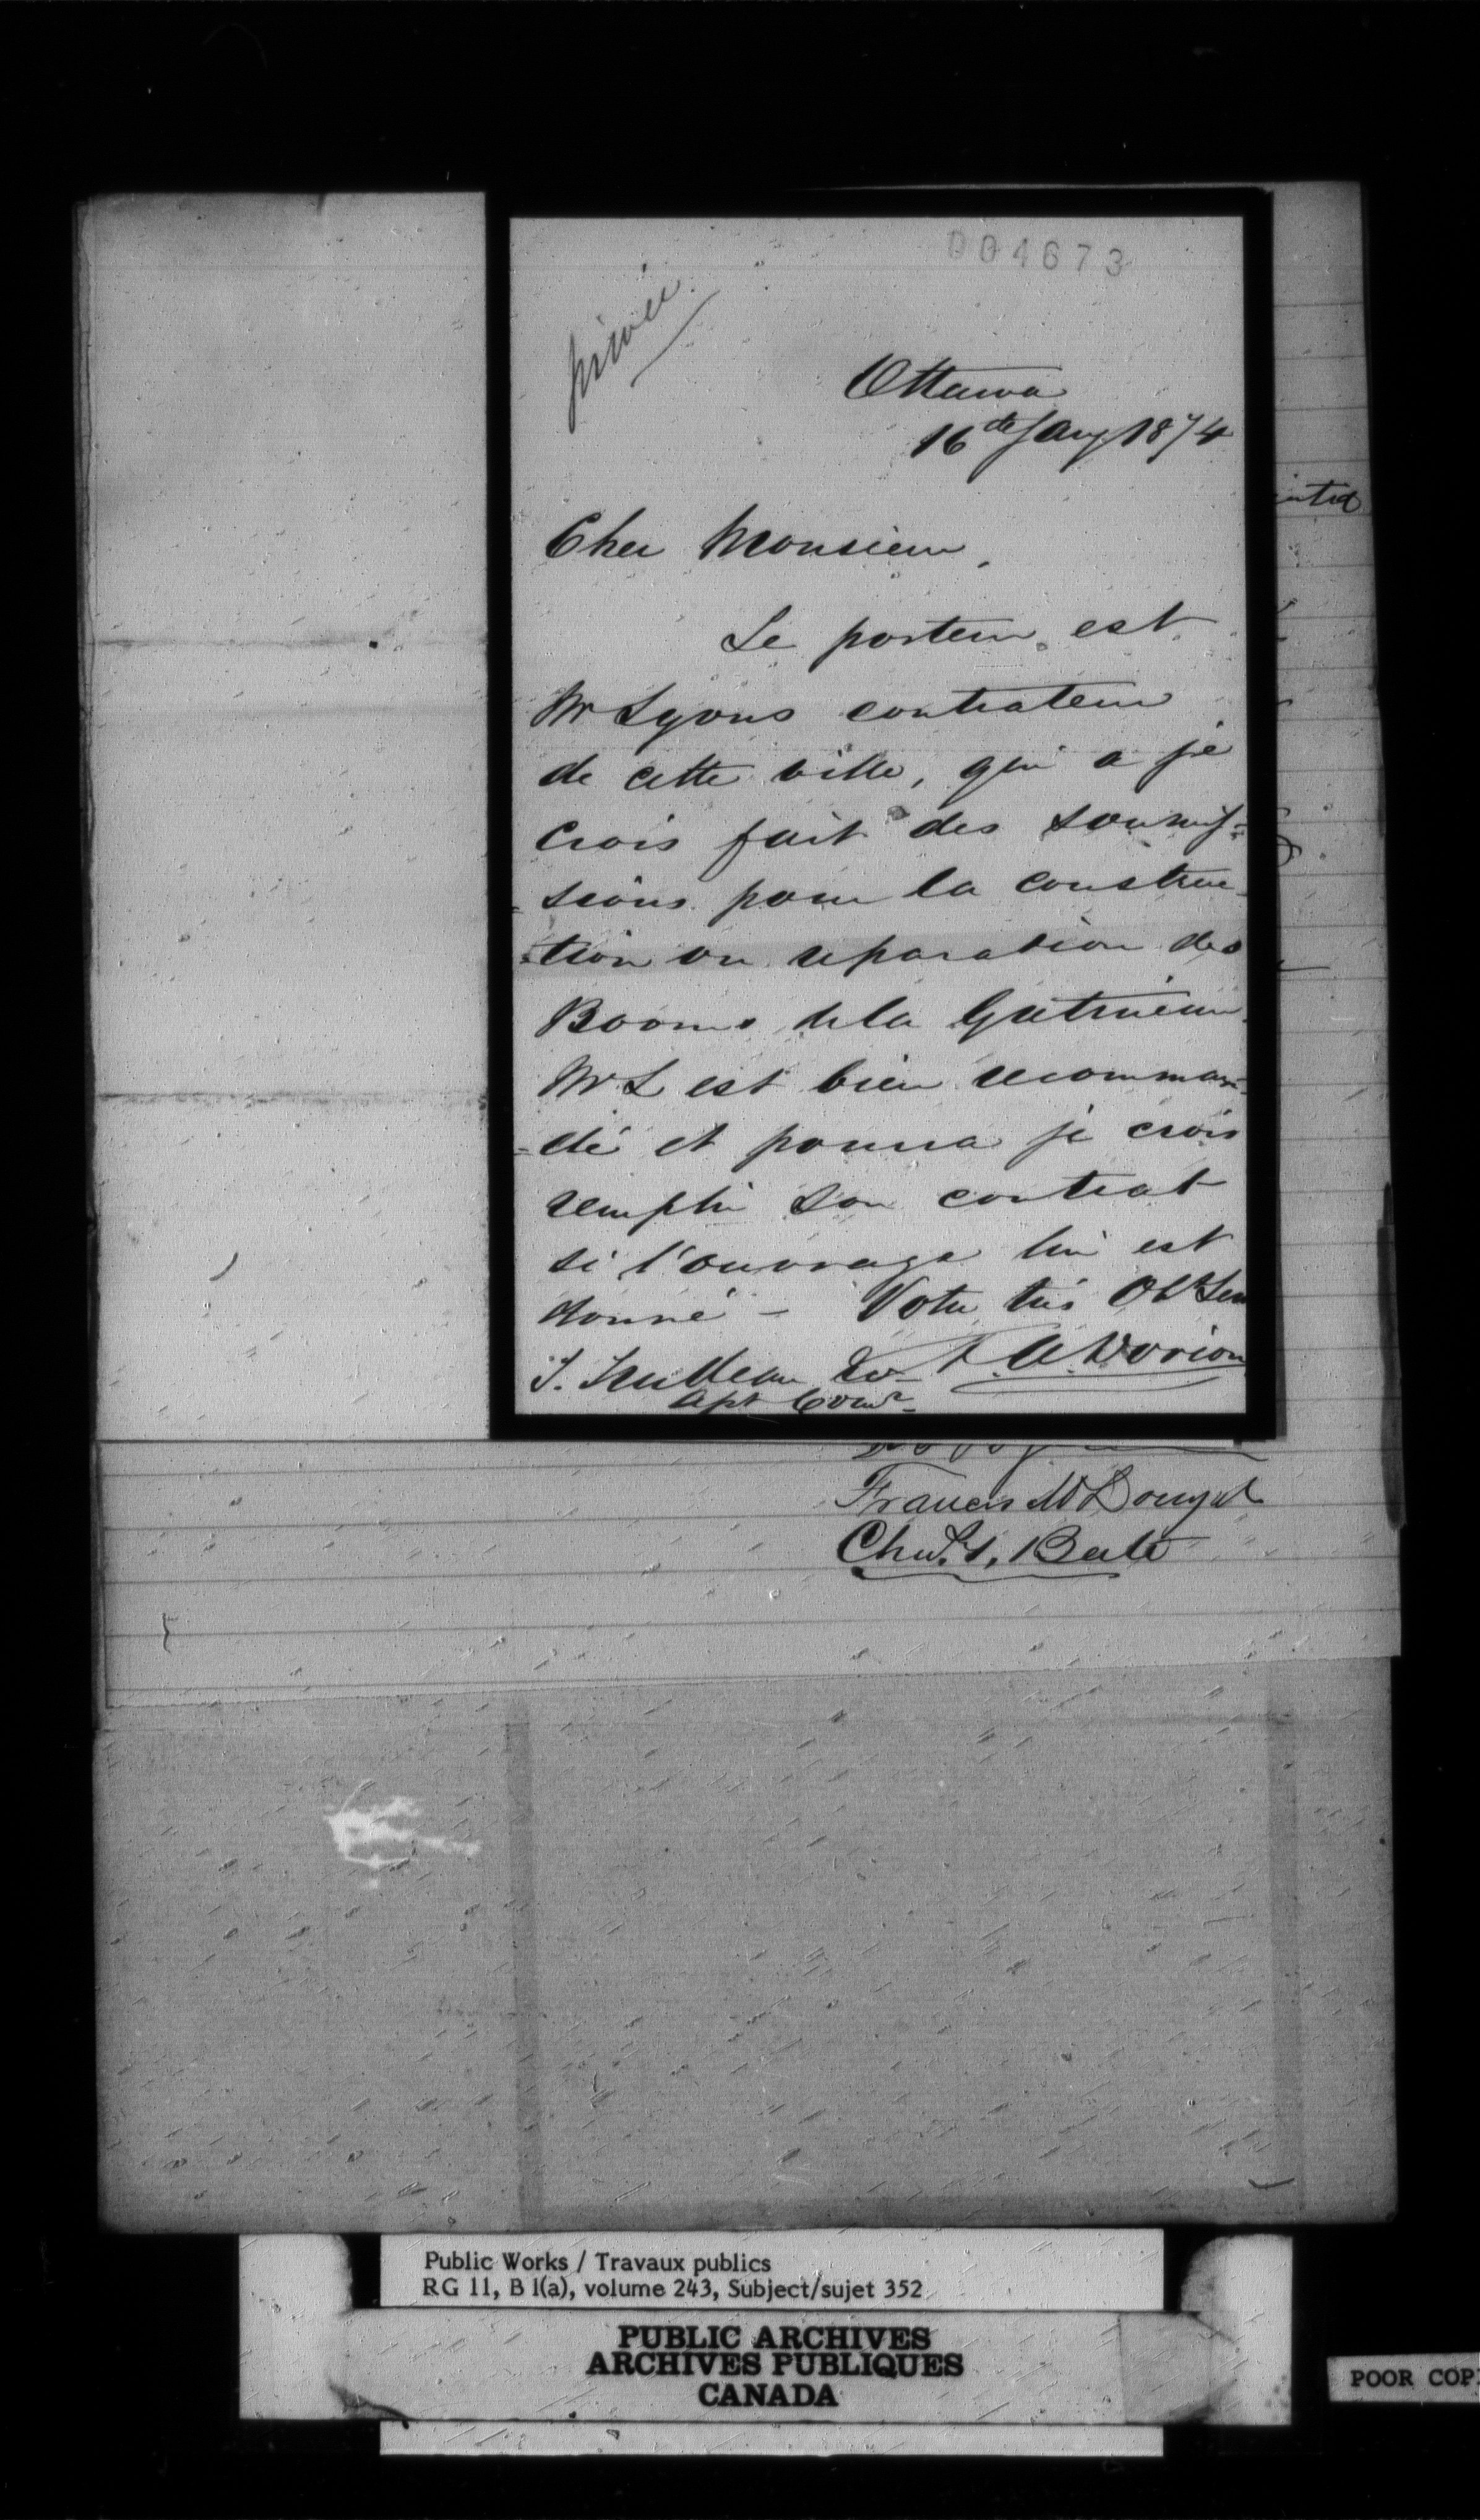 004673
privée
Ottawa
16 de Jany 1874
Cher Monsieur,
Le porteur est
Mr Lyons contrateur
de cette ville, qui a je
crois fait des soumis=
=sions pour la construc=
=tion ou reparation des
Booms de la Gatineau.
Mr L est bien recomman=
=dé et pourra je crois
remplir son contrat
si l'ouvrage lui est
donné - Votre très Obt Serv
T. Trudeau Ecr
Apt Comr
Dorion
Francis McDougal
Chas. T. Bate
Public Works / Travaux publics
RG 11, B 1(a), volume 243, Subject/sujet 352
PUBLIC ARCHIVES
ARCHIVES PUBLIQUES
CANADA
POOR COP